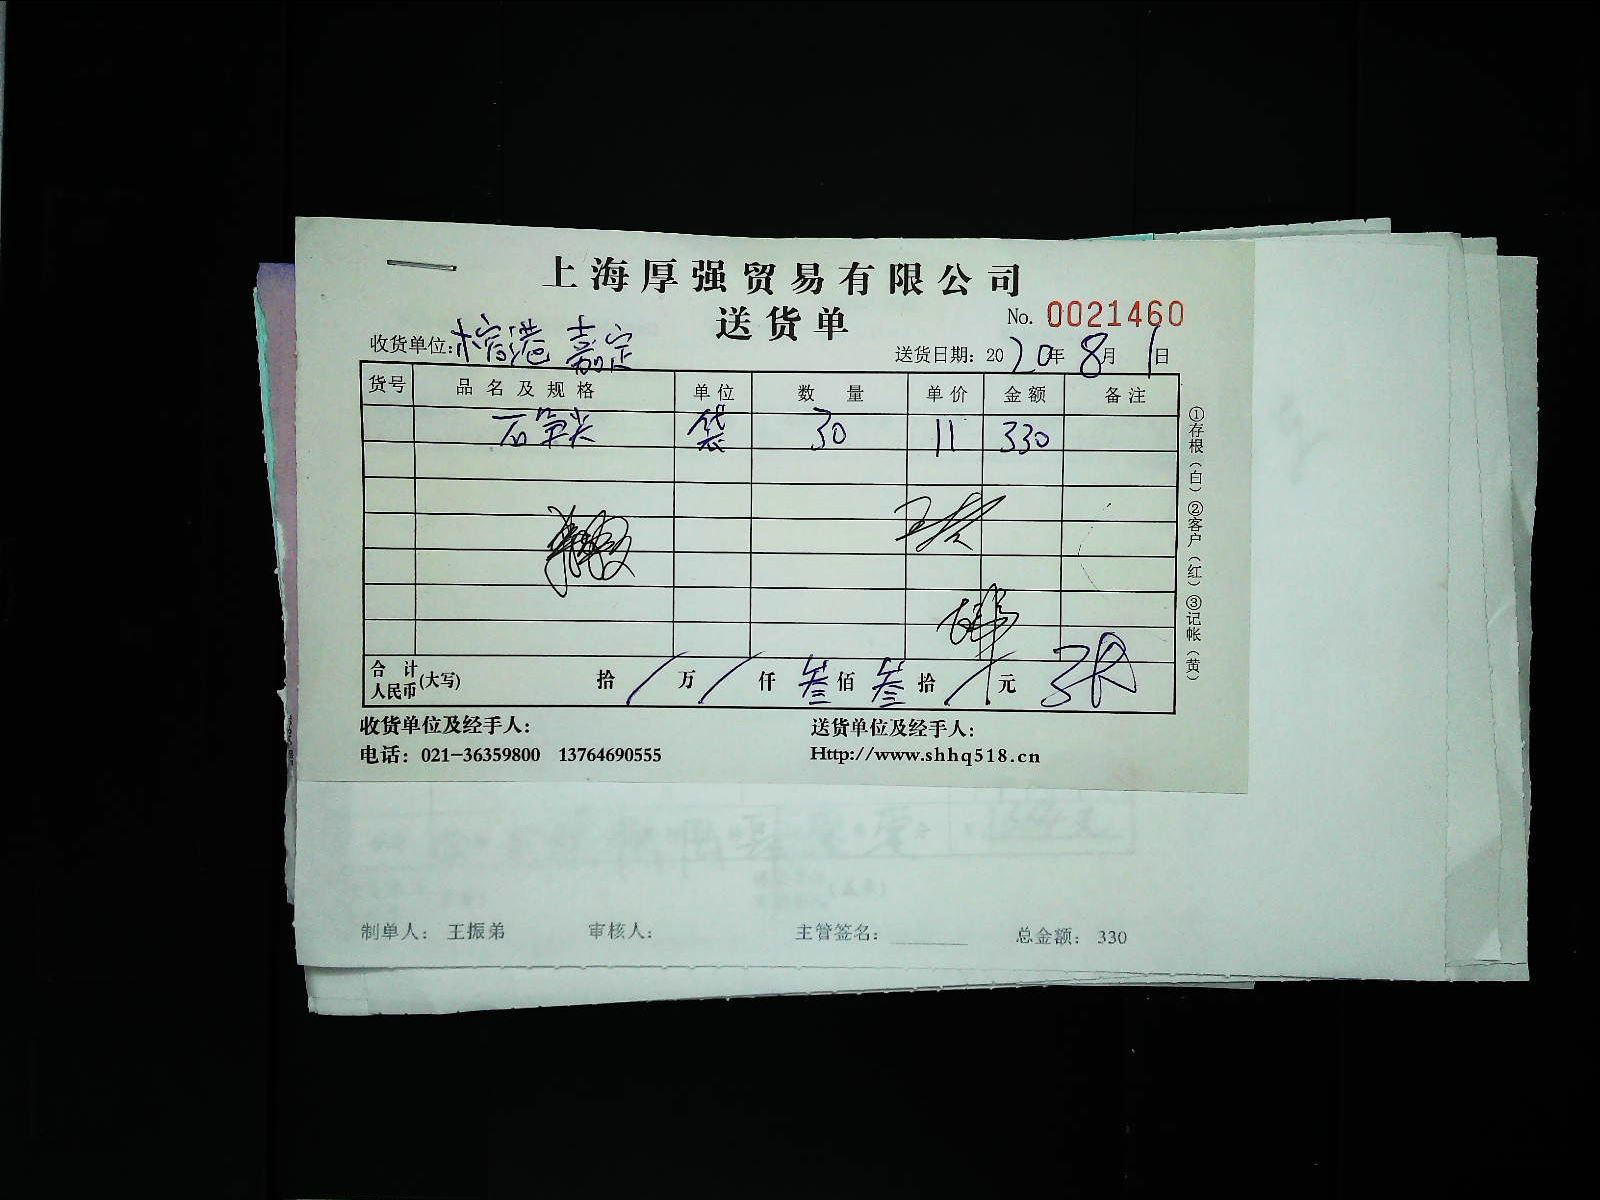 上海厚强贸易有限公司
送货单
No. 0021460
收货单位:榕港 嘉定
送货日期: 2020年8月1日
货号 品名及规格 单位 数量 单价 金额 备注
石笋尖 袋 30 11 330
合计人民币(大写) 拾/万/仟叁佰叁拾/元
收货单位及经手人:
送货单位及经手人:
电话: 021-36359800 13764690555
Http://www.shhq518.cn
①存根(白)②客户(红)③记帐(黄)
制单人: 王振弟 审核人: 主管签名: 总金额: 330